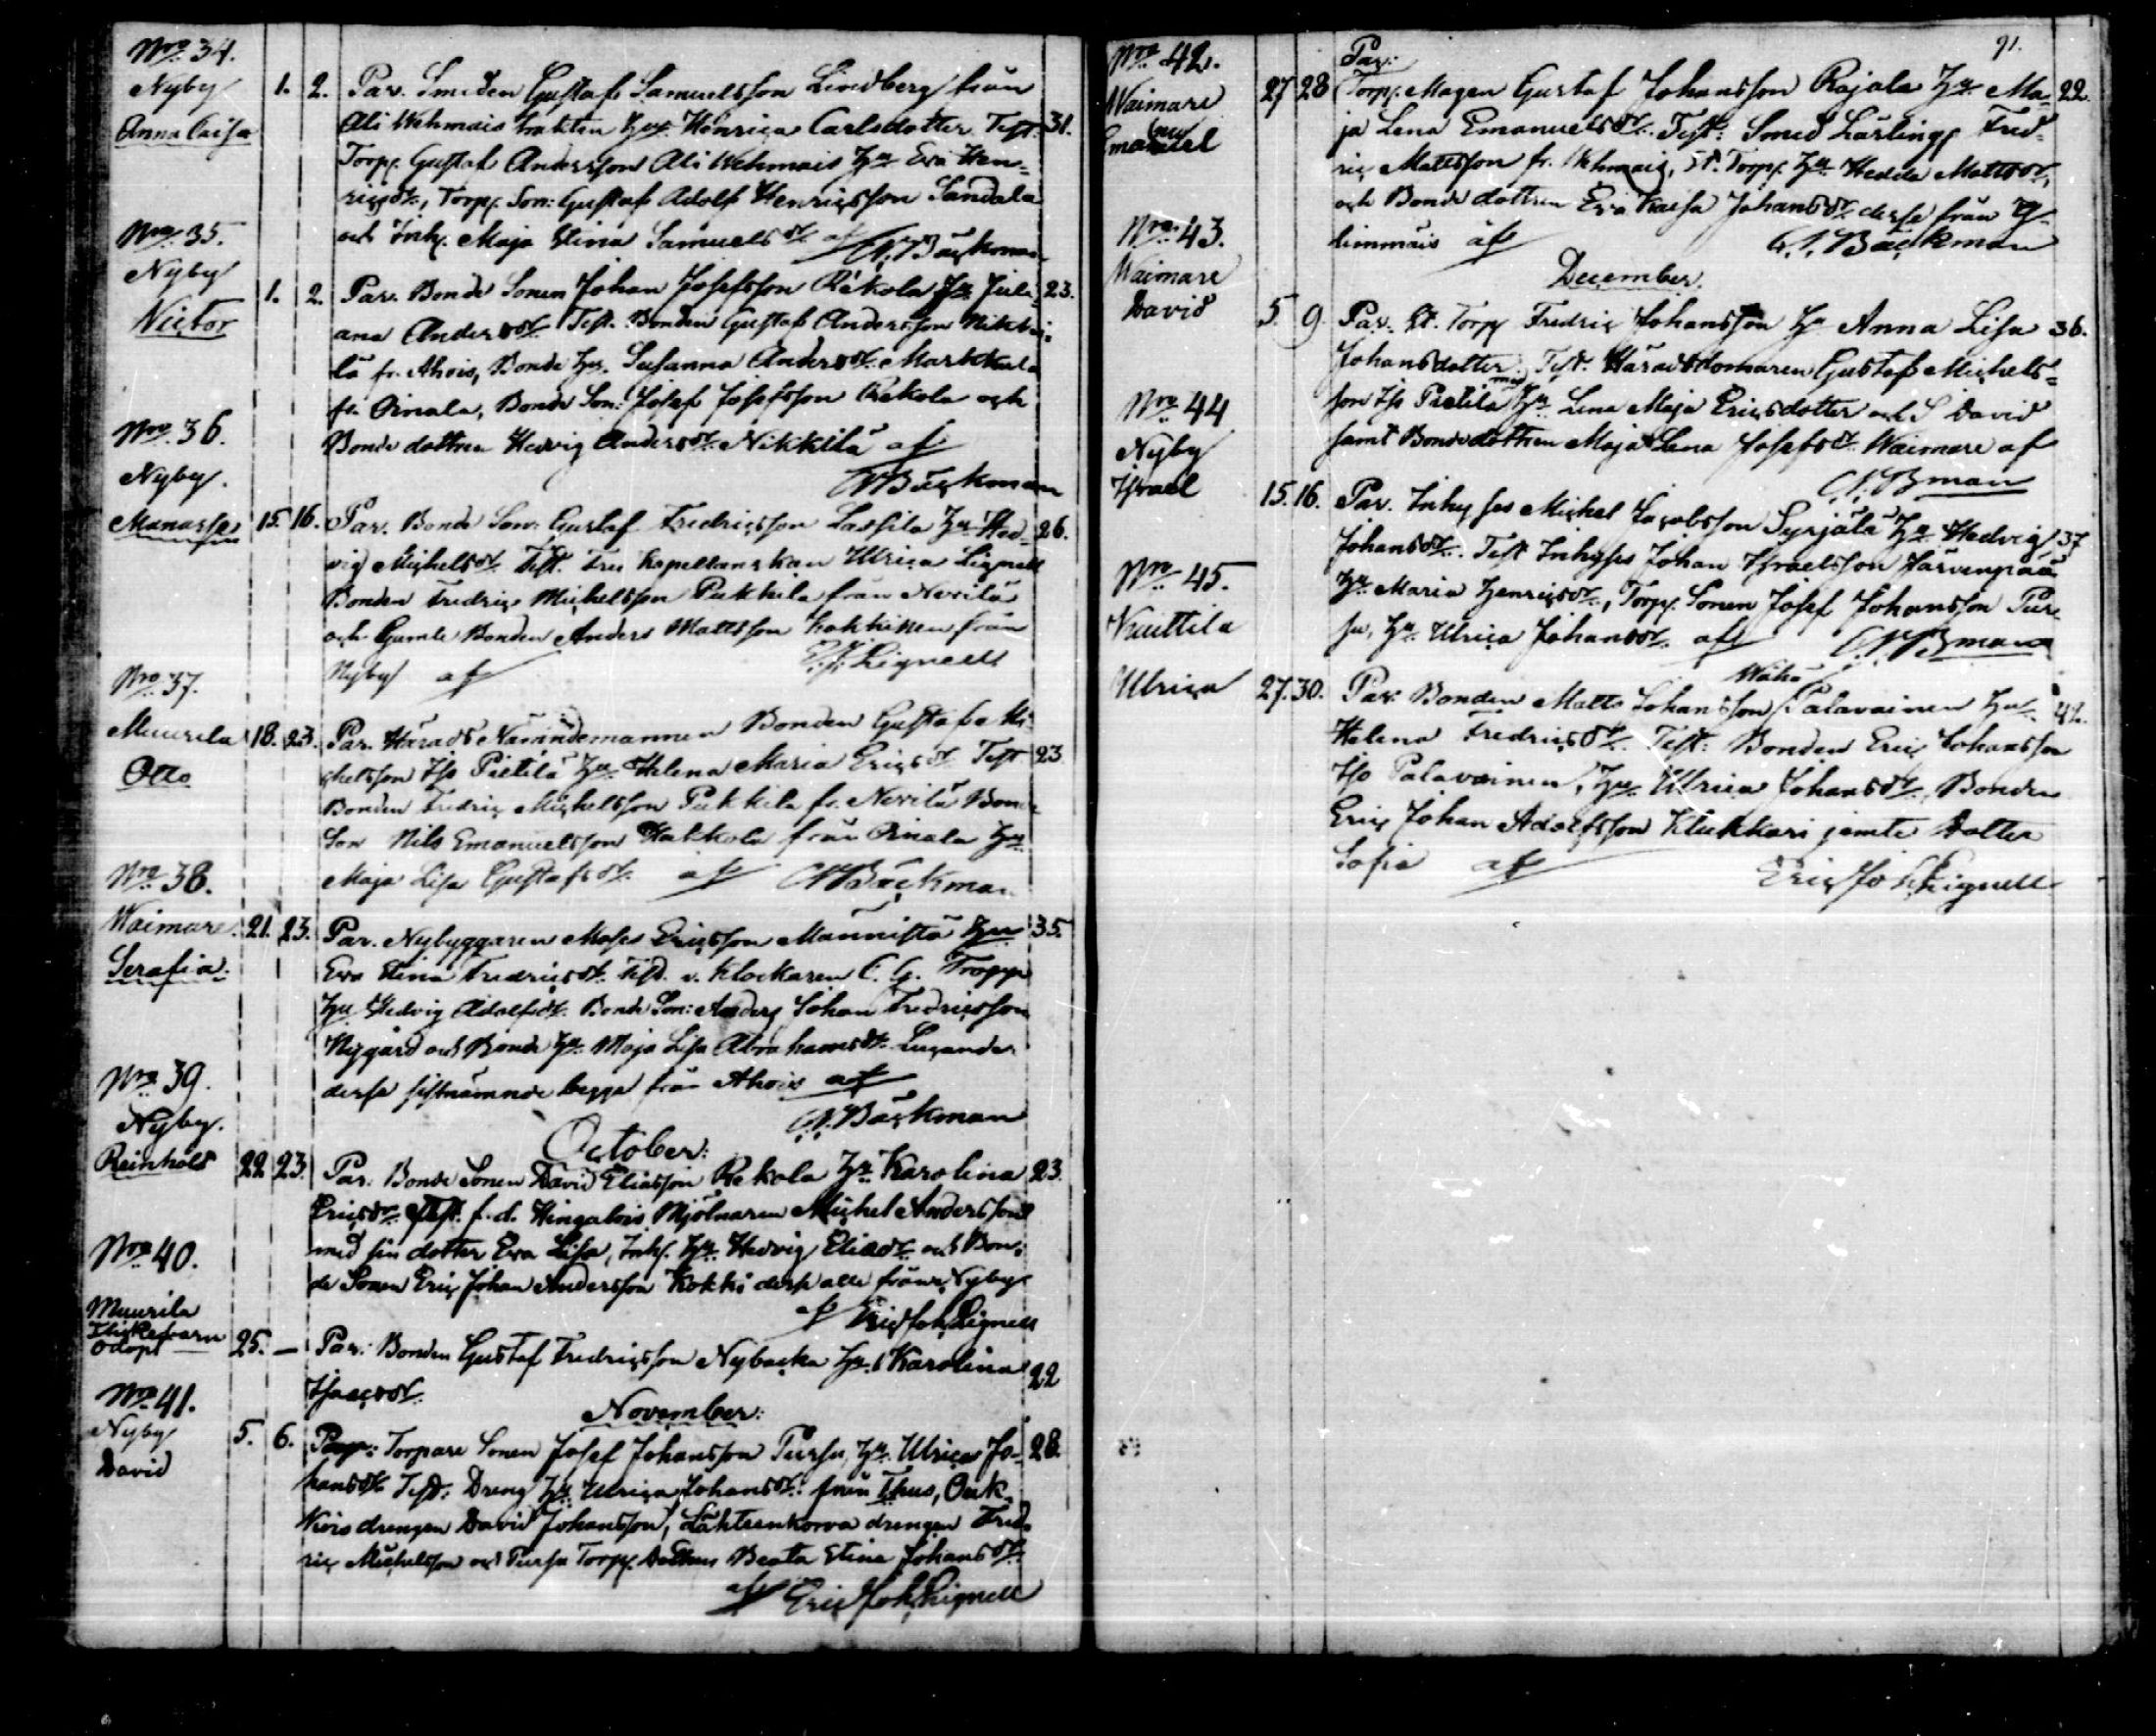 Nro 34.
Nyby 1. 2. Par. Smeden Gustaf Samuelsson Lindberg från
Anna Caisa Ali Wehmais trakten Hu Henrica Carlsdotter Test. 31.
Torp. Gustaf Andersson Ali Wehmais Hu Eva Hen-
ricsdr, Torp. Son: Gustaf Adolf Henricsson Sandala
och Inh. Maja Stina Samuelsdr af Bäckman
Nro 35.
Nyby 1. 2. Par. Bonde Sonen Johan Josefsson Rekola Hu Juli- 23.
Victor ana Andersdr Test. Bonden Gustaf Andersson Nikki-
lä fr. Ahois, Bonde Hu. Susanna Andersdr Markkula
fr. Oinala, Bonde Son: Josef Josefsson Rekola och
Bonde dottren Hedvig Andersdr Nikkilä af
Bäckman
Nro 36.
Nyby.
Manasse 15. 16. Par. Bonde Son: Gustaf Fredricsson Lassila Hu Hed- 26.
vig Michelsdr Test. Fru Kapellanskan Ulrica Lignell
Bonden Fredric Michelsson Pukkila från Nevilä
och Gamle Bonden Anders Mattsson Kokkinen från
Nyby af Lignell
Nro 37.
Muurila 18. 23. Par. Härads Nämndemannen Bonden Gustaf Mi-
Otto chelsson Iso Pietilä Hu Helena Maria Ericsdr Test 23
Bonden Fredric Michelsson Pukkila fr. Nevilä Bon-
Son Nils Emanuelsson Hakkola från Oinala Hu
Maja Lisa Gustafsdr af Bäckman
Nro 38.
Waimare. 21. 23. Par. Nybyggaren Moses Ericsson Männistö Hu 35.
Serafia. Eva Stina Fredricsdr. Test. v. Klockaren C. G. Tropp
Hu Hedvig Adolfsdr. Bonde Son: Anders Johan Fredricsson
Nygård och Bonde Hu Maja Lisa Abrahamsdr. Lucander
desse sistnämnde begge från Ahois af
Bäckman
Nro 39.
Nyby. October:
Reinhold 22 23. Par. Bonde Sonen David Eliasson Rekola Hu Karolina 23.
Ericsdr Test. f. d. Hingalois Mjölnaren Michel Andersson
med sin dotter Eva Lisa, Inh. Hu Hedvig Eliasdr och Bon-
de Sonen Eric Johan Andersson Kokki desse alle från Nyby
af Eric Joh Lignell
Nro 40.
Muurila
Flickebarn
Odöpt 25. — Par: Bonden Gustaf Fredricsson Nybacka Hu Karolina 22
Isacsdr
Nro 41. November:
Nyby 5. 6. Par: Torpare Sonen Josef Johansson Pursu, Hu Ulrica Jo- 28.
David hansdr Test: Dreng Hu Ulrica Johansdr från Thus, Ouk-
kois drengen David Johansson, Lähteenkorva drengen Fred-
ric Michelsson och Pursu Torp. dottren Beata Stina Johansdr
af Eric Joh Lignell
91.
Nro 42. Par:
Waimare 27 28 Torp. Magen Gustaf Johansson Rajala Hu Ma- 22.
Emanuel ja Lena Emanuelsdr. Test: Smed Lärling Fred-
ric Mattsson fr. Wehmais, St. Torp. Hu Hedda Mattsdr,
och Bonde dottren Eva Kaisa Johansdr desse från
limmais af Bäckman
Nro 43. December.
Waimare
David 5. 9. Par. St. Torp Fredric Johansson Hu Anna Lisa 36.
Johansdotter. Test. Häradsdomaren Gustaf Michels-
son Iso Pietilä med Hu Lena Maja Ericsdotter och S David
samt Bondedottren Maja Lena Josefsdr Waimare af
Bman
Nro 44
Nyby
Israel 15. 16. Par. Inhyses Michel Jacobsson Syrjälä Hu Hedvig 37
Johansdr. Test Inhyses Johan Israelsson Järvenpää
Hu Maria Henricsdr, Torp. Sonen Josef Johansson Pur-
su, Hu Ulrica Johansdr af Bman
Nro 45.
Knuttila Wähä
Ulrica 27. 30. Par: Bonden Matts Johansson Palavainen Hu 42.
Helena Fredricsdr. Test: Bonden Eric Johansson
Iso Palavainen, Hu Ulrica Johansdr, Bonden
Eric Johan Adolfsson Klukkari jemte dotter
Sofia af Eric Joh Lignell